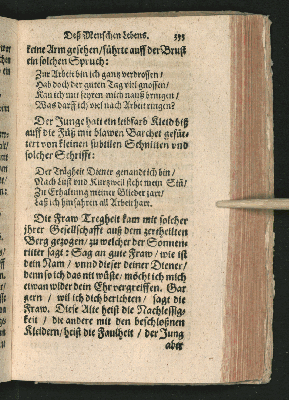 Deß Menschen Lebens. 395
keine Arm gesehen/ führte auff der Brust
ein solchen Spruch:
Zur Arbeit bin ich gantz verdrossen/
Hab doch der guten Tag viel gnossen/
Kan ich mit feyren mich nauß bringen/
Was darff ich viel nach Arbeit ringen?
Der Junge hatt ein leibfarb Kleid biß
auff die Füß mit blawen Barchet gefüt-
tert von kleinen subtilen Schnitten vnd
solcher Schrifft:
Der Trägheit Diener genandt ich bin/
Nach Lust vnd Kurtzweil steht mein Siñ/
Zu Erhaltung meiner Glieder zart/
Laß ich hinfahren all Arbeit hart.
Die Fraw Tregheit kam mit solcher
jhrer Gesellschafft auß dem zertheilten
Berg gezogen/ zu welcher der Sonnen-
ritter sagt: Sag an gute Fraw/ wie ist
dein Nam/ vnnd dieser deiner Diener/
denn so ich das nit wüste/ möcht ich mich
etwan wider dein Ehr vergreiffen. Gar
gern/ wil ich dich berichten/ sagt die
Fraw. Diese Alte heist die Nachlessig-
keit/ die andere mit den beschloßnen
Kleidern/ heist die Faulheit/ der Jung
aber